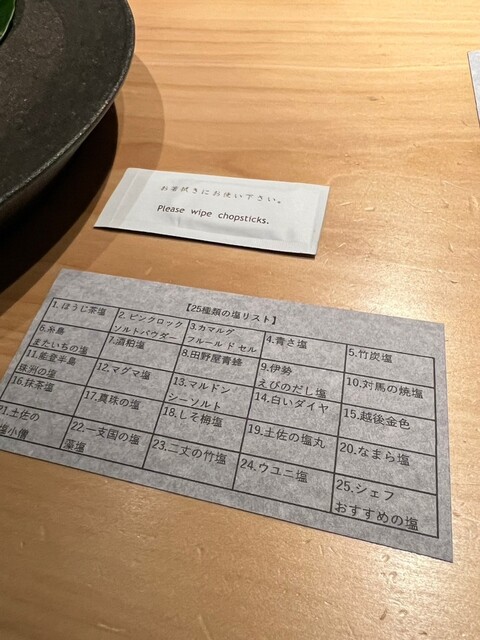 お箸拭きにお使い下さい。
Please wipe chopsticks.
【25種類の塩リスト】
1. ほうじ茶塩
2. ピンクロック
ソルトパウダー
3.カマルグ
フルール ド セル
4.青さ塩
5.竹炭塩
6.糸島
またいちの塩
7.酒粕塩
8.田野屋青蜂
9.伊勢
えびのだし塩
10.対馬の焼塩
11.能登半島
珠洲の塩
12.マグマ塩
13.マルドン
シーソルト
14.白いダイヤ
15.越後金色
16.抹茶塩
17.真珠の塩
18.しそ梅塩
19.土佐の塩丸
20.なまら塩
21.土佐の
塩小僧
22.一支国の塩
藻塩
23.二丈の竹塩
24.ウユニ塩
25.シェフ
おすすめの塩